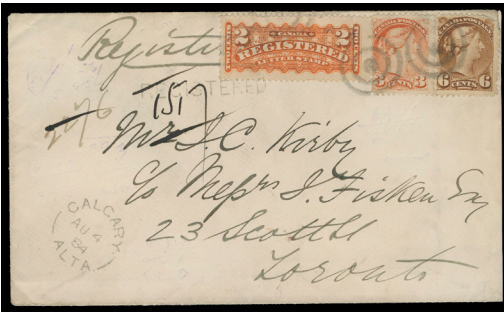 Registered
2 CANADA 2
REGISTERED
LETTER STAMP
CANADA POSTAGE
3 CENTS 3
CANADA POSTAGE
6 CENTS 6
REGISTERED
151
Mr J. C. Kirby
c/o Messrs J. Fisken Esq
23 Scott St
Toronto
CALGARY
AU 4
84
ALTA